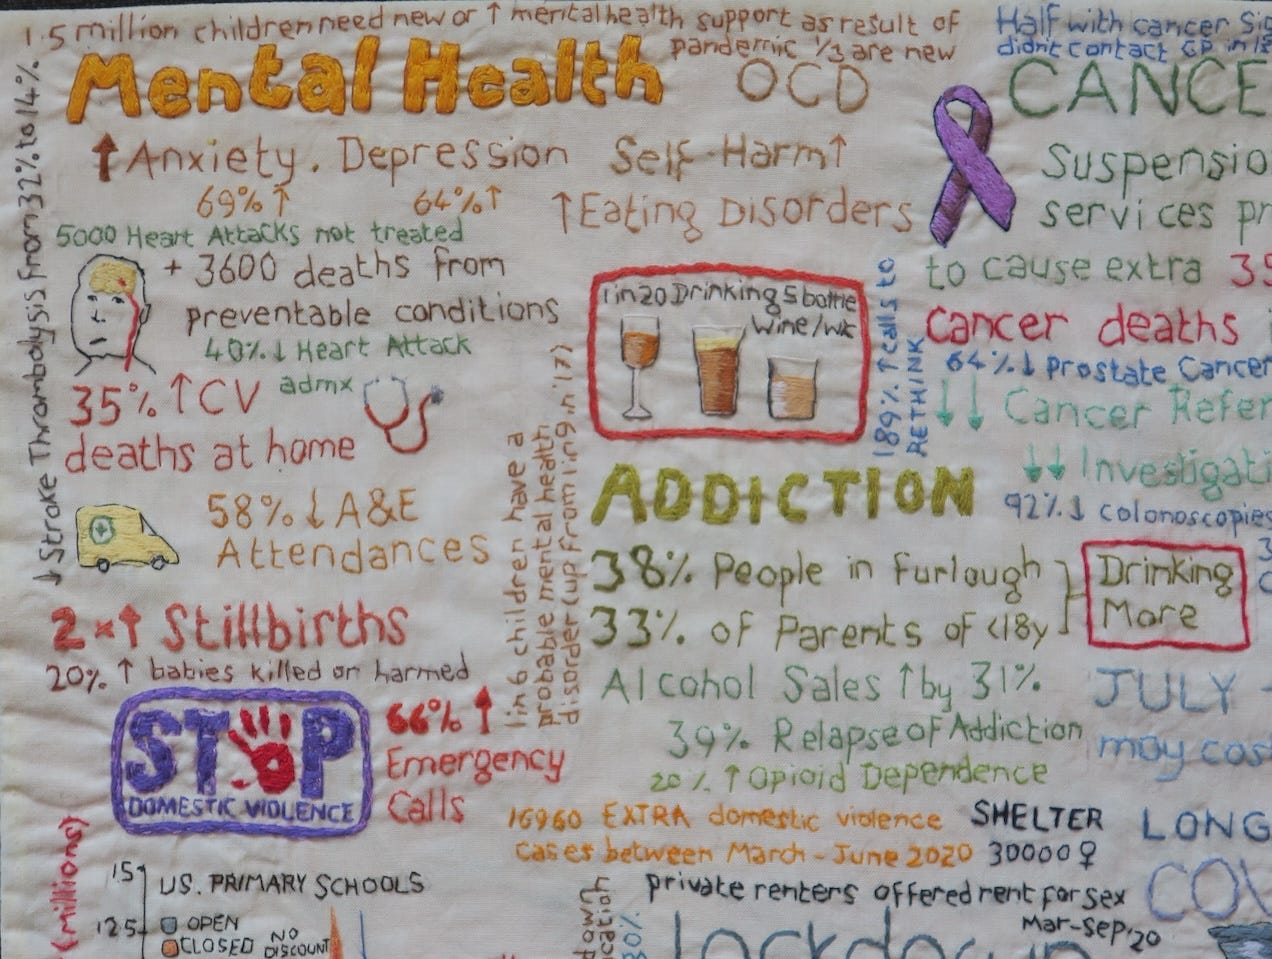 1.5 million children need new or ↑ mental health support as result of
pandemic 1/3 are new
Mental Health
OCD
↑ Anxiety. Depression
69%↑ 64%↑
Self-Harm↑
↑Eating Disorders
↓ Stroke Thrombolysis from 32% to 14%
5000 Heart Attacks not treated
+ 3600 deaths from
preventable conditions
40%↓ Heart Attack
admx
35% ↑CV
deaths at home
58%↓A&E
Attendances
2x↑ Stillbirths
20% ↑ babies killed or harmed
STOP
DOMESTIC VIOLENCE
66%↑
Emergency
Calls
1 in 6 children have a
probable mental health
disorder (up from 1 in 9 in '17)
1 in 20 Drinking 5 bottle
Wine/wk
189% ↑ calls to
RETHINK
ADDICTION
38% People in Furlough
33% of Parents of <18y
Drinking
More
Alcohol Sales ↑by 31%
39% Relapse of Addiction
20% ↑ Opioid Dependence
16960 EXTRA domestic violence
cases between March - June 2020
SHELTER
30000♀
private renters offered rent for sex
Mar-Sep'20
Half with cancer
didn't contact GP in
CANCE
Suspensio
services pr
to cause extra 35
Cancer deaths
64%↓ Prostate Cancer
↓↓ Cancer Refer
↓↓ Investigati
92%↓ colonoscopies
JULY
may cos
LONG
COV
(millions)
15
12.5
US. PRIMARY SCHOOLS
OPEN
CLOSED
NO
DISCOUNT
30%
lockdown